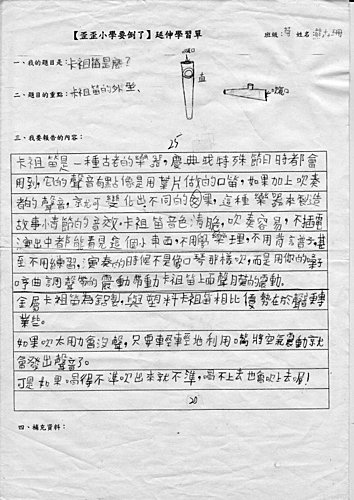 【歪歪小學要倒了】延伸學習單
班級: 姓名:
一、我的題目是:卡祖笛是麼?
二、題目的重點:卡祖笛的外型、
吹口
直
吹口
三、我要報告的內容:
25
卡祖笛是一種古老的樂器,慶典或特殊節日時都會
用到,它的聲音有點像是用葉片做的口笛,如果加上吹奏
者的聲音,京尤可變化出不同的效果,這種樂器來製造
故事情節的音效,卡祖笛音色清脆,吹奏容易,不插電
演出中都能看見這個小東西,不用學樂理,不用背譜子,甚
至不用練習,演奏的時候不是像口琴那樣吹,而是用你的嗓子
哼曲調,聲帶的震動帶動卡祖笛上面聲月莫的震動。
金屬卡祖笛為鋁製,與塑料卡祖笛相比優勢在於聲
業些。
如果吹太用力會沒聲,只要輕輕地利用嘴將空氣震動就
會發出聲音了。
可是如果唱得不準吹出來就不準,唱不上去也會吹上去喔!
20
四、補充資料: